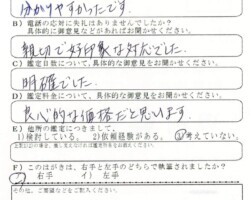 分かりやすかったです。
B) 電話の応対に失礼はありませんでしたか?
具体的に御意見などがあればお聞かせください。
親切で好印象な対応でした。
C) 鑑定日数について、具体的な御意見をお聞かせください。
明確でした。
D) 鑑定料金について、具体的な御意見をお聞かせください。
良心的な価格だと思います。
E) 他所の鑑定につきまして。
1)検討している。 2)依頼経験がある。 3)考えていない。
F) このはがきは、右手と左手のどちらで執筆されましたか?
ア) 右手 イ) 左手